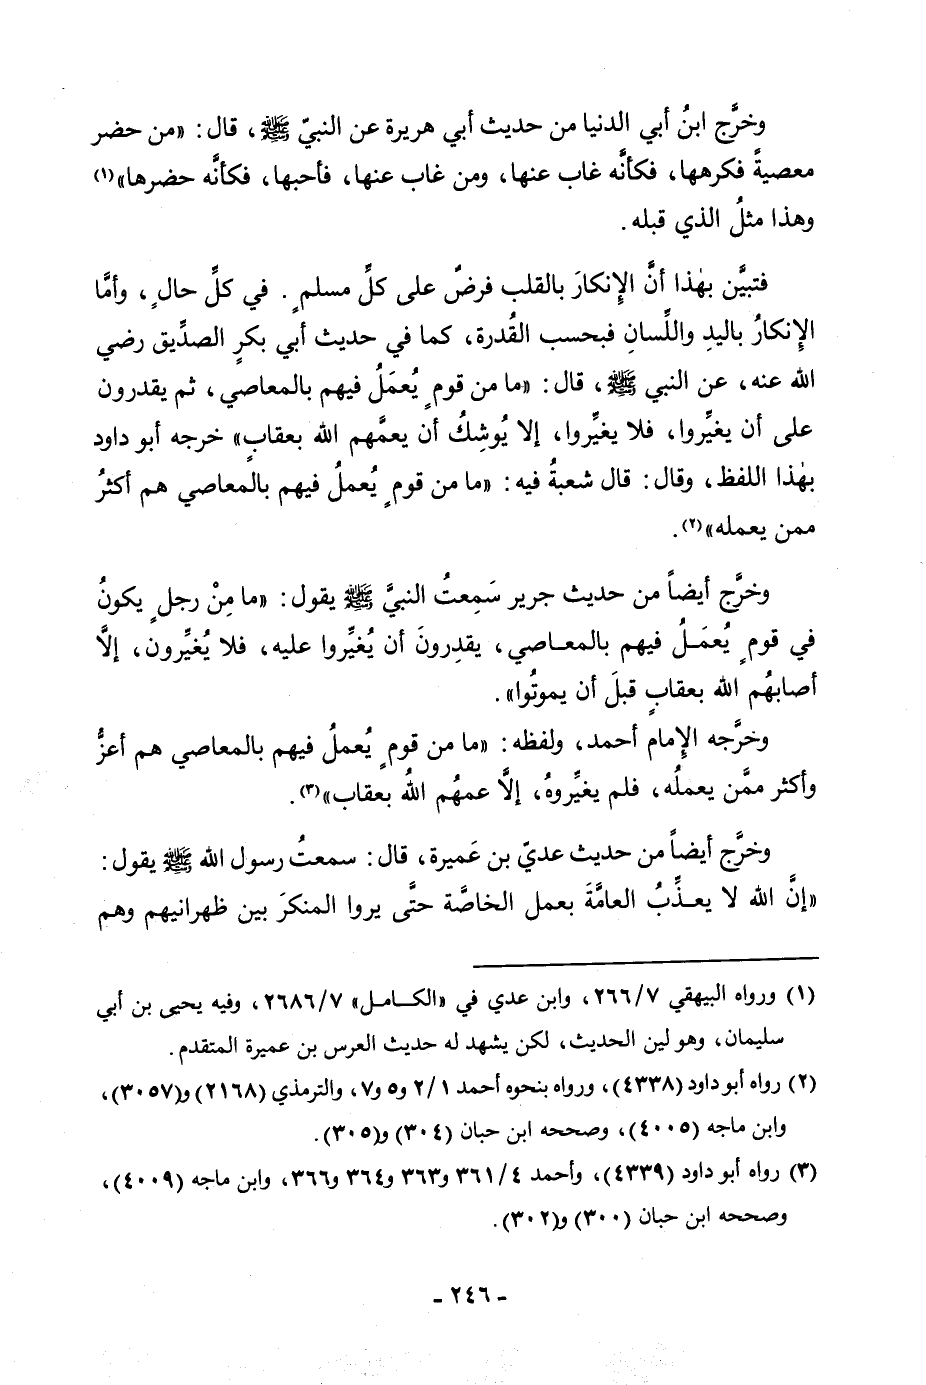 وخرَّج ابنُ أبي الدنيا من حديث أبي هريرة عن النبيّ ﷺ، قال: «من حضر
معصيةً فكرهها، فكأنَّه غاب عنها، ومن غاب عنها، فأحبها، فكأنَّه حضرها»(١)
وهذا مثلُ الذي قبله.
فتبيَّن بهٰذا أنَّ الإِنكارَ بالقلب فرضٌ على كلِّ مسلمٍ. في كلِّ حالٍ، وأمَّا
الإِنكارُ باليدِ واللِّسانِ فبحسب القُدرة، كما في حديث أبي بكرٍ الصدِّيق رضي
الله عنه، عن النبي ﷺ، قال: «ما من قومٍ يُعمَلُ فيهم بالمعاصي، ثم يقدرون
على أن يغيِّروا، فلا يغيِّروا، إلا يُوشِكُ أن يعمَّهم الله بعقابٍ» خرجه أبو داود
بهٰذا اللفظ، وقال: قال شعبةُ فيه: «ما من قومٍ يُعملُ فيهم بالمعاصي هم أكثرُ
ممن يعمله»(٢).
وخرَّج أيضاً من حديث جرير سَمِعتُ النبيَّ ﷺ يقول: «ما مِنْ رجلٍ يكونُ
في قومٍ يُعمَـلُ فيهم بالمعـاصي، يقدِرونَ أن يُغيِّروا عليه، فلا يُغيِّرون، إلَّا
أصابهُم الله بعقابٍ قبلَ أن يموتُوا».
وخرَّجه الإِمام أحمد، ولفظه: «ما من قومٍ يُعملُ فيهم بالمعاصي هم أعزُّ
وأكثر ممَّن يعملُه، فلم يغيِّروهُ، إلَّا عمهُم اللهُ بعقاب»(٣).
وخرَّج أيضاً من حديث عديّ بن عَميرة، قال: سمعتُ رسول الله ﷺ يقول:
«إنَّ الله لا يعـذِّبُ العامَّةَ بعمل الخاصَّة حتَّى يروا المنكرَ بين ظهرانيهم وهم
(١) ورواه البيهقي ٢٦٦/٧، وابن عدي في «الكـامـل» ٢٦٨٦/٧، وفيه يحيى بن أبي
سليمان، وهو لين الحديث، لكن يشهد له حديث العرس بن عميرة المتقدم.
(٢) رواه أبو داود (٤٣٣٨)، ورواه بنحوه أحمد ٢/١ و٥ و٧، والترمذي (٢١٦٨) و(٣٠٥٧)،
وابن ماجه (٤٠٠٥)، وصححه ابن حبان (٣٠٤) و(٣٠٥).
(٣) رواه أبو داود (٤٣٣٩)، وأحمد ٣٦١/٤ و٣٦٣ و٣٦٤ و٣٦٦، وابن ماجه (٤٠٠٩)،
وصححه ابن حبان (٣٠٠) و(٣٠٢).
- ٢٤٦ -